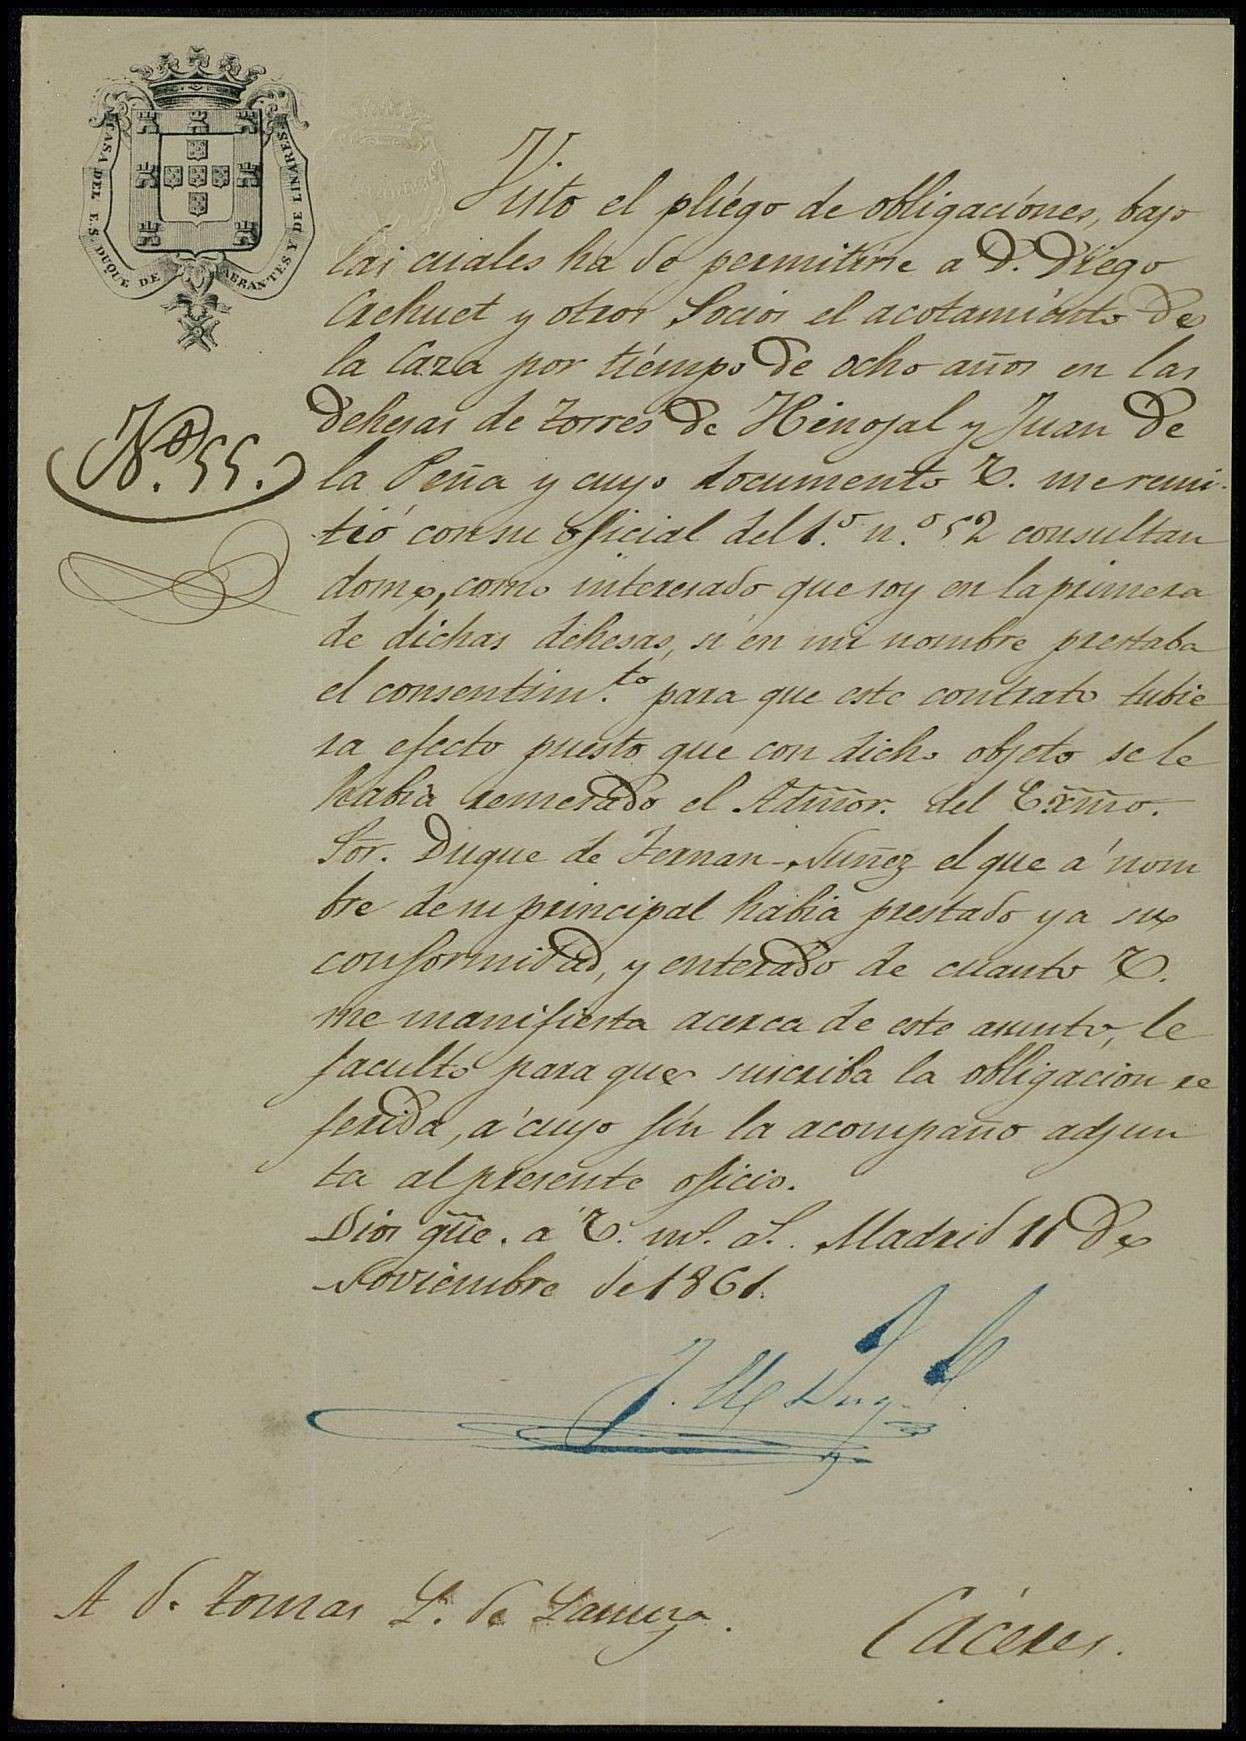 CASA DEL E.S. DUQUE DE ABRANTES Y DE LINARES.
Visto el pliégo de obligaciónes, bajo
las cuales ha de permitirse a D. Diégo
Crehuet y otros Socios el acotamiénto de
la Caza por tiémpo de ocho años en las
Dehesas de torres de Hinojal y Juan de
N.º 55.
la Peña y cuyo documento V. me remi-
tió con su oficial del 1.º n.º 52 consultan
dome, como interesado que soy en la primera
de dichas dehesas, si en mi nombre prestaba
el consentim.to para que este contrato tubie
ra efecto puesto que con dicho objeto se le
habia
el Admor. del Exmo.
Sor. Duque de Fernan-Nuñez el que á nom
bre de su principal habia prestado ya su
conformidad, y enterado de cuanto V.
me manifiesta acerca de este asunto, le
faculto para que suscriba la obligacion re
ferida, á cuyo fin la acompaño adjun
ta al presente oficio.
Dios gue. a V. m.s a.s. Madrid 11 de
Noviembre de 1861.
A D. Tomas L. de
Cáceres.